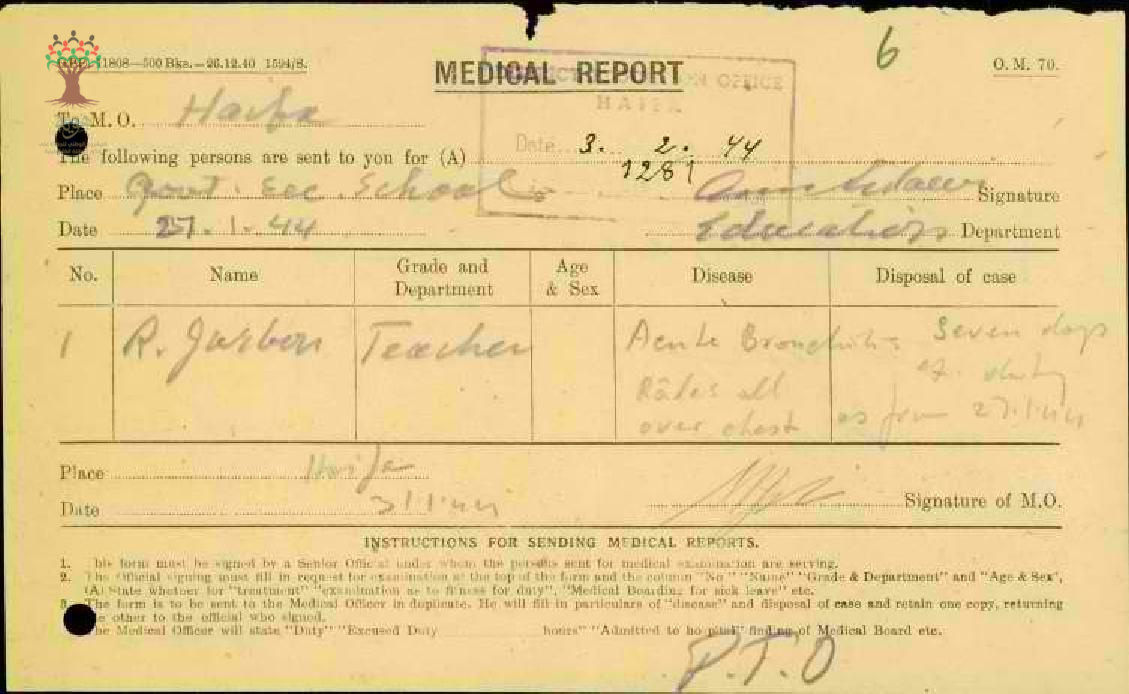 GPP 11808—500 Bks.—26.12.40 1594/S.
6
O. M. 70.
MEDICAL REPORT
OFFICE
HAIFA
To M. O. Haifa
Date 3. 2. 44
The following persons are sent to you for (A)
1281
Place Govt. Sec. School Signature
Date 27. 1. 44 Education Department
No. Name Grade and Department Age & Sex Disease Disposal of case
1 R. Teacher Acute Bronchitis Seven days
Râles all of duty
over chest as from 27.1.44
Place Haifa
Date 31.1.44 Signature of M.O.
INSTRUCTIONS FOR SENDING MEDICAL REPORTS.
1. This form must be signed by a Senior Official under whom the persons sent for medical examination are serving.
2. The Official signing must fill in request for examination at the top of the form and the column "No." "Name" "Grade & Department" and "Age & Sex",
(A) State whether for "treatment" "examination as to fitness for duty", "Medical Boarding for sick leave" etc.
3. The form is to be sent to the Medical Officer in duplicate. He will fill in particulars of "disease" and disposal of case and retain one copy, returning
the other to the official who signed.
The Medical Officer will state "Duty" "Excused Duty hours" "Admitted to hospital" finding of Medical Board etc.
P.T.O